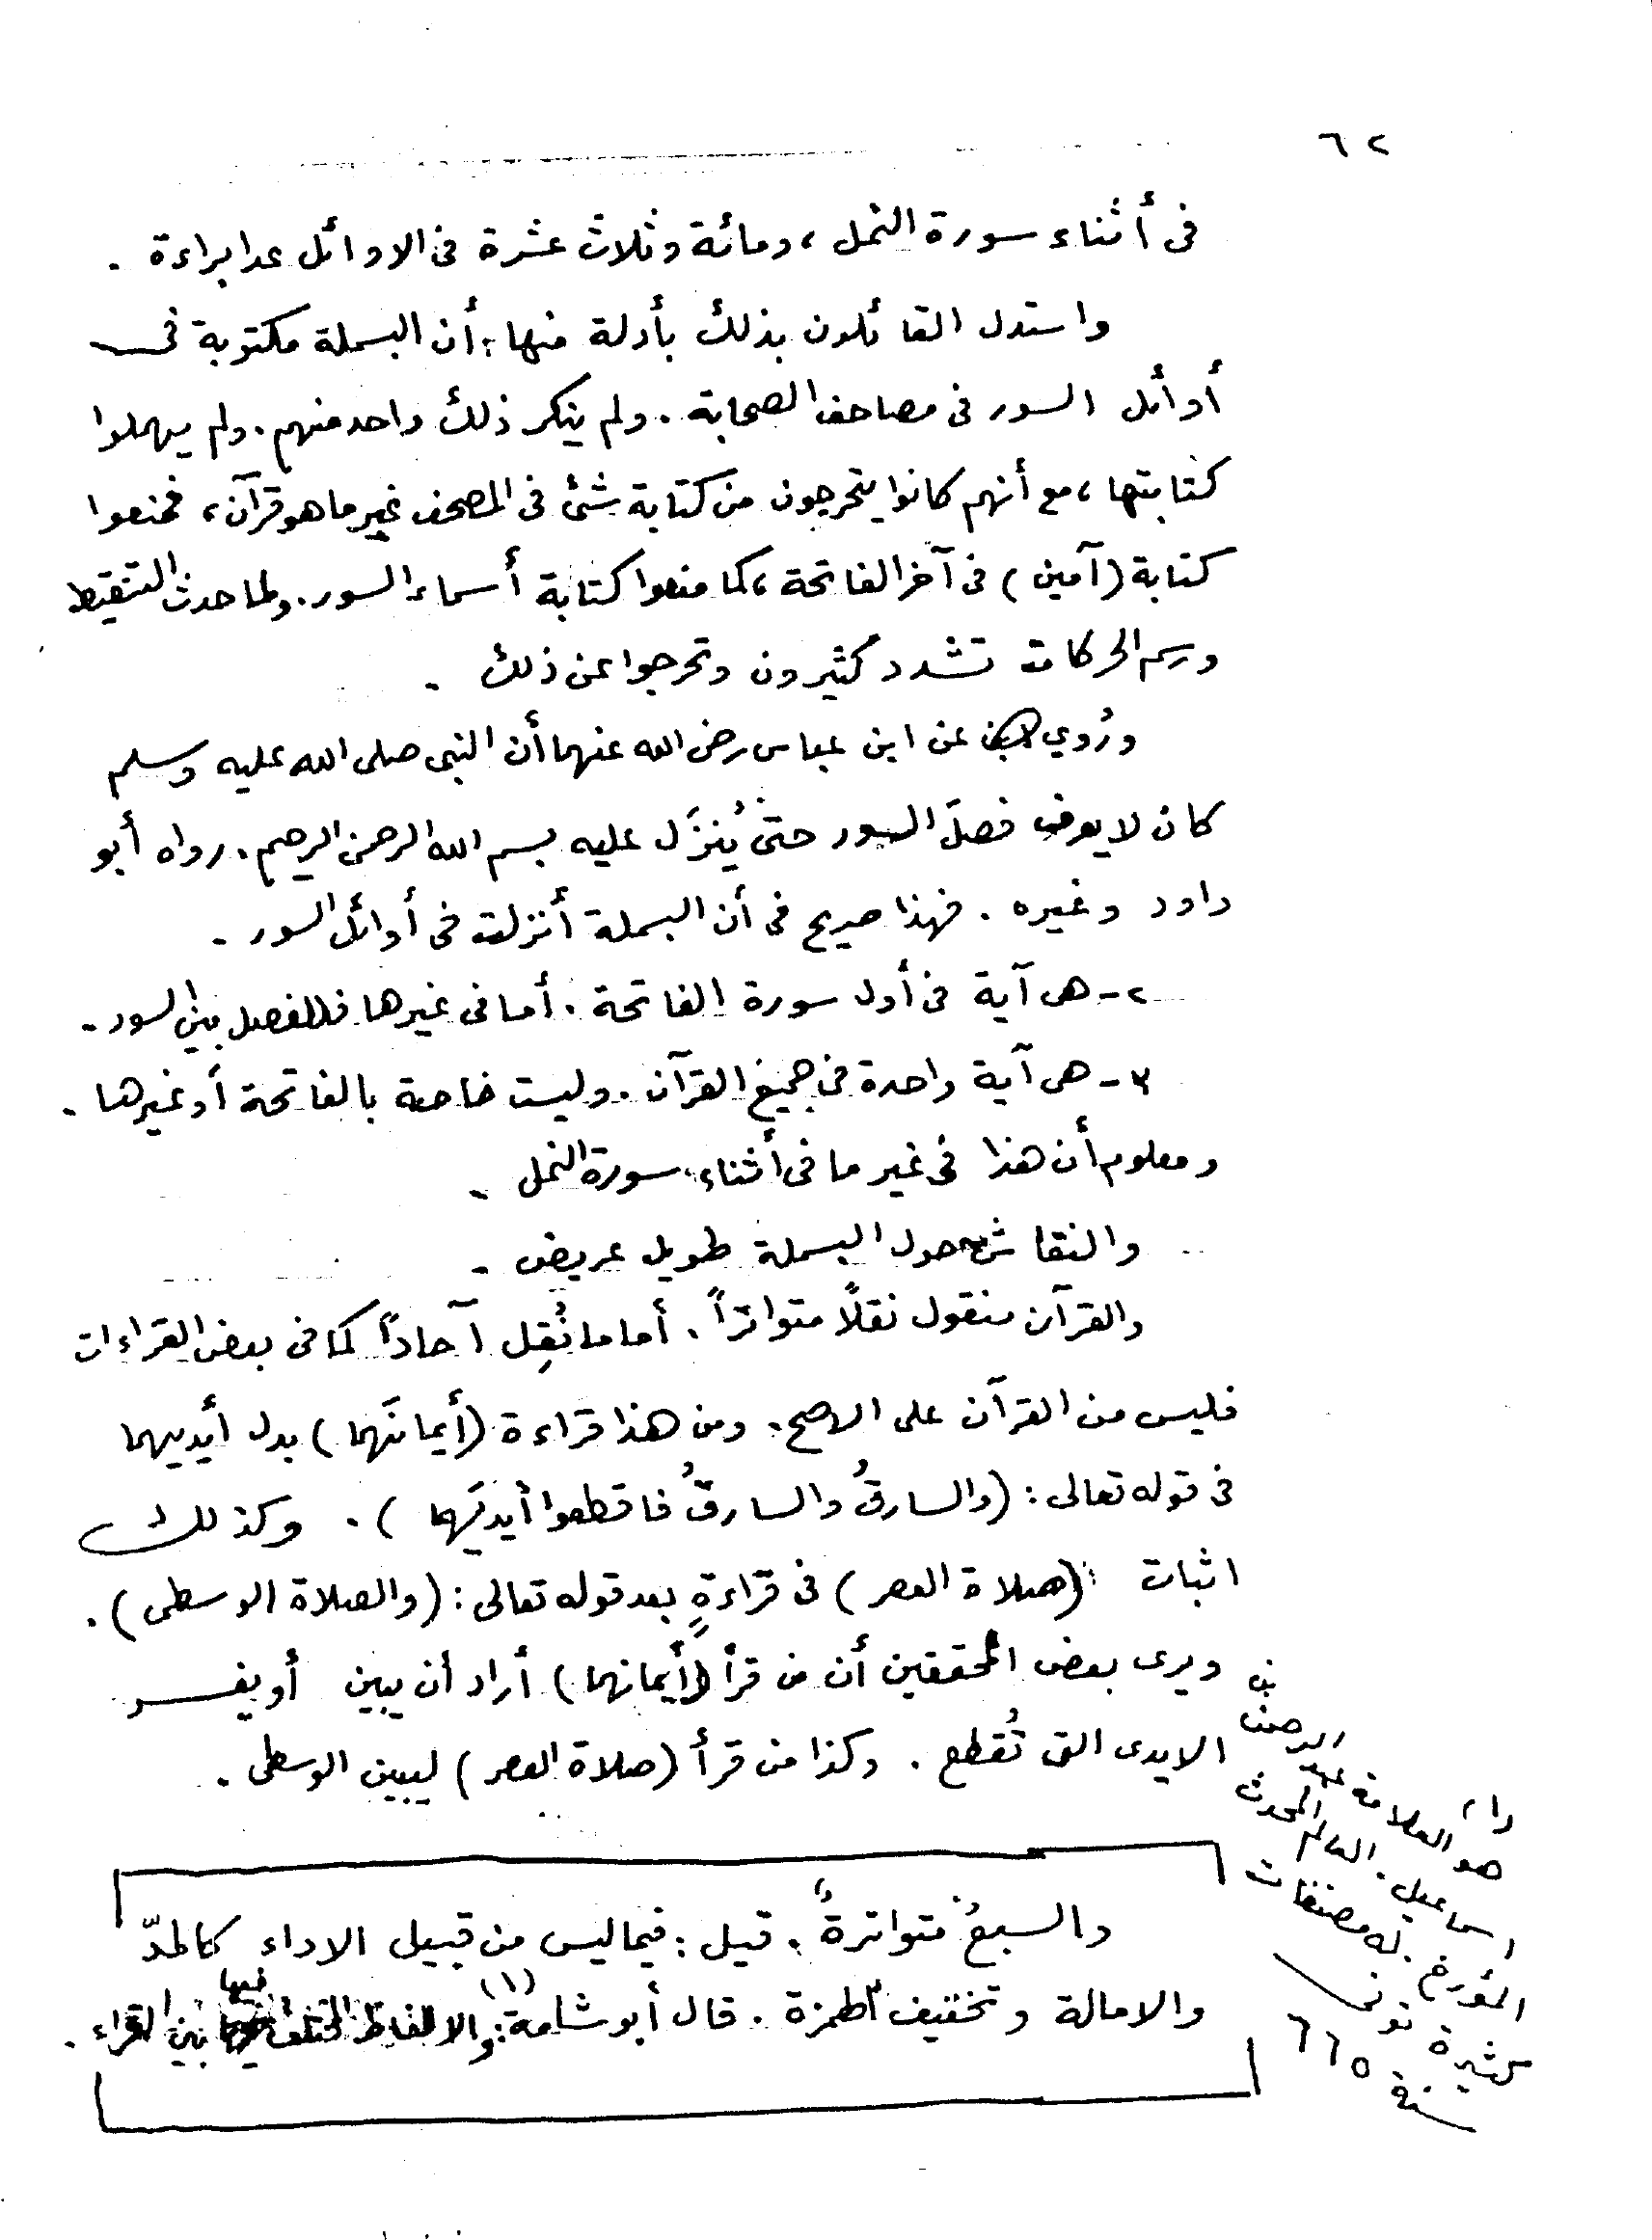 ٦٢
فى أثناء سورة النمل ، ومائة وثلاث عشرة فى الاوائل عدا براءة .
واستدل القائلون بذلك بأدلة منها : أن البسملة مكتوبة فى
أوائل السور فى مصاحف الصحابة . ولم ينكر ذلك واحد منهم . ولم يهملوا
كتابتها ، مع أنهم كانوا يتحرجون من كتابة شئ فى المصحف غير ما هو قرآن ، فمنعوا
كتابة (آمين) فى آخر الفاتحة ، كما منعوا كتابة أسماء السور . ولما حدث التنقيط
ورسم الحركات تشدد كثيرون وتحرجوا عن ذلك .
ورُوي عن ابن عباس رضى الله عنهما أن النبى صلى الله عليه وسلم
كان لا يعرف فصلَ السور حتى يُنزَل عليه بسم الله الرحمن الرحيم . رواه أبو
داود وغيره . فهذا صريح فى أن البسملة أنزلت فى أوائل السور .
٢ - هى آية فى أول سورة الفاتحة . أما فى غيرها فللفصل بين السور .
٣ - هى آية واحدة فى جميع القرآن . وليست خاصة بالفاتحة أو غيرها .
ومعلوم أن هذا فى غير ما فى أثناء سورة النمل .
والنقاش حول البسملة طويل عريض .
والقرآن منقول نقلاً متواتراً . أما ما نُقِل آحاداً كما فى بعض القراءات
فليس من القرآن على الاصح . ومن هذا قراءة (أيمانَهما) بدل أيديهما
فى قوله تعالى : (والسارقُ والسارقةُ فاقطعوا أيديَهما) . وكذلك
اثبات (صلاة العصر) فى قراءةٍ بعد قوله تعالى : (والصلاة الوسطى) .
ويرى بعض المحققين أن من قرأ (أيمانهما) أراد أن يبين أو يفسر
الايدى التى تُقطع . وكذا من قرأ (صلاة العصر) ليبين الوسطى .
والسبعُ متواترةٌ . قيل : فيما ليس من قبيل الاداء كالمدّ
والامالة وتخفيف الهمزة . قال أبو شامة (١) : والالفاظ المختلف فيها بين القراء .
(١) هو العلامة عبد الرحمن بن
اسماعيل . العالم المحدث
المؤرخ . له مصنفات
كثيرة توفى
سنة ٦٦٥